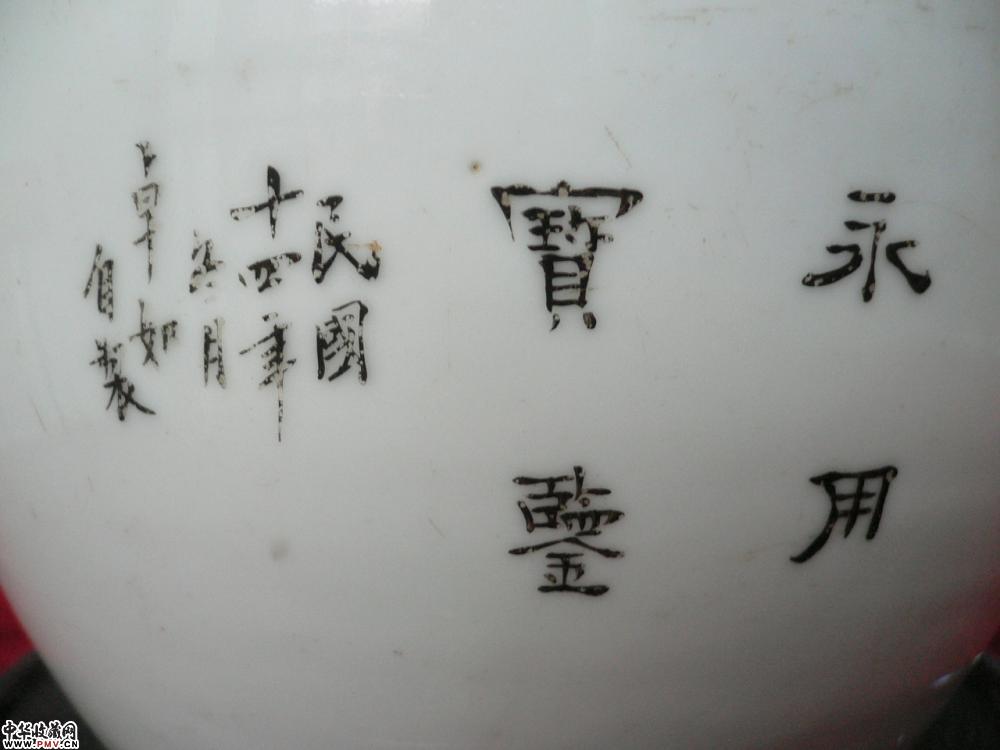 永用
寶鑒
民國
十四年
月
卓如
自製
中华收藏网
WWW.PMV.CN